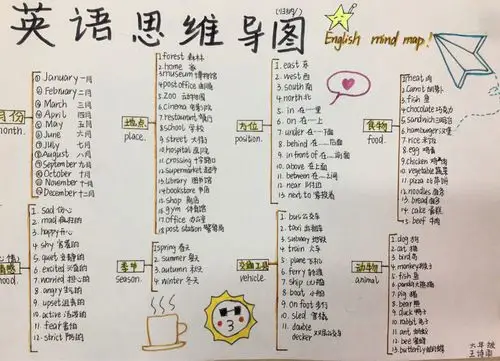 英语思维导图
(归纳)
English mind map!
月份
month.
① January 一月
② February 二月
③ March 三月
④ April 四月
⑤ May 五月
⑥ June 六月
⑦ July 七月
⑧ August 八月
⑨ September 九月
⑩ October 十月
November 十一月
December 十二月
地点
place.
1. forest 森林
2. home 家
3. museum 博物馆
4. post office 邮局
5. zoo 动物园
6. cinema 电影院
7. restaurant 餐厅
8. school 学校
9. street 大街
10. hospital 医院
11. crossing 十字路口
12. supermarket 超市
13. library 图书馆
14. bookstore 书店
15. shop 商店
16. gym 体育馆
17. office 办公室
18. post station
方位
position.
1. east 东
2. west 西
3. south 南
4. north 北
5. in 在…里
6. on 在…上
7. under 在…下面
8. behind 在…后面
9. in front of 在…前面
10. above 在…上面
11. between 在…之间
12. near 附近
13. next to 紧挨着
食物
food.
1. meat 肉
2. carrot 胡萝卜
3. fish 鱼
4. chocolate 巧克力
5. sandwich 三明治
6. hamburger 汉堡
7. rice 米饭
8. egg 鸡蛋
9. chicken 鸡肉
10. vegetable 蔬菜
11. pizza 比萨饼
12. noodles 面条
13. bread 面包
14. cake 蛋糕
15. beef 牛肉
情感
mood.
1. sad 伤心
2. mad
3. happy 开心
4. shy 害羞的
5. quiet 安静的
6. excited
7. worried 担心的
8. angry 生气的
9. upset 沮丧的
10. active 活泼的
11. fear 害怕
12. strict 严厉的
季节
season.
1. spring 春天
2. summer 夏天
3. autumn 秋天
4. winter 冬天
交通工具
vehicle.
1. bus 公交车
2. taxi 出租车
3. subway 地铁
4. train 火车
5. plane 飞机
6. ferry 轮渡
7. ship 船
8. boat 小船
9. on foot 步行
10. sled 雪橇
11. double decker 双层公交车
动物
animal.
1. dog 狗
2. bird 鸟
4. monkey 猴子
5. fish 鱼
6. panda 大熊猫
7. pig 猪
8. bear 熊
9. duck 鸭子
10. rabbit 兔子
11. ant 蚂蚁
12. bee 蜜蜂
13. butterfly 蝴蝶
六年级